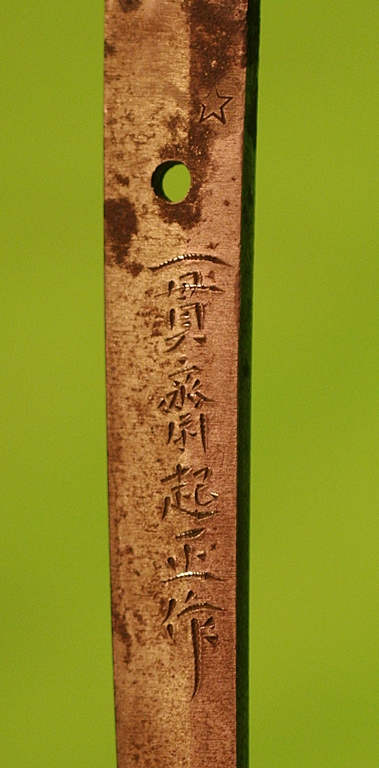 一貫斎起正作